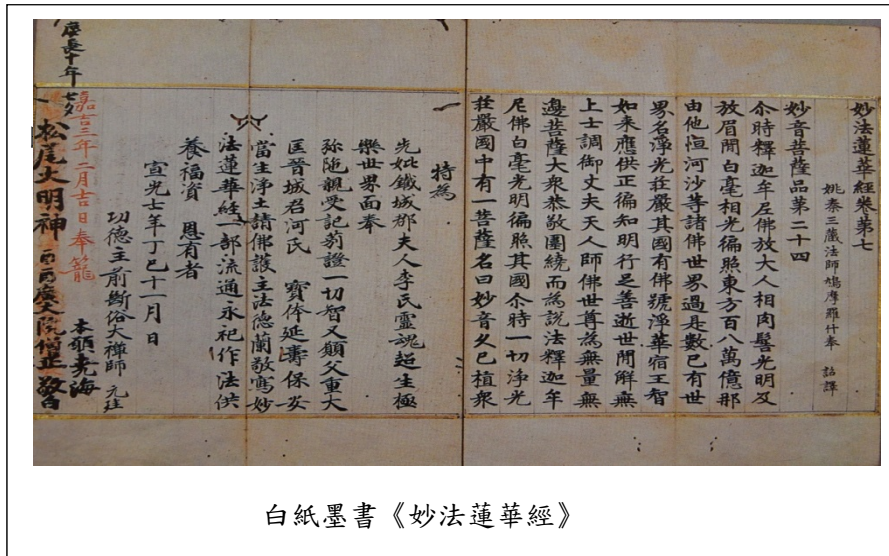 妙法蓮華經卷第七
姚秦三藏法師鳩摩羅什奉 詔譯
妙音菩薩品第二十四
尒時釋迦牟尼佛放大人相肉髻光明及
放眉間白毫相光徧照東方百八萬億那
由他恒河沙等諸佛世界過是數已有世
界名淨光莊嚴其國有佛號淨華宿王智
如来應供正徧知明行足善逝世間解無
上士調御丈夫天人師佛世尊為無量無
邊菩薩大衆恭敬圍繞而為說法釋迦牟
尼佛白毫光明徧照其國尒時一切淨光
莊嚴國中有一菩薩名曰妙音久已植衆
一 特為
先妣鐵城郡夫人李氏靈魂超生極
樂世界面奉
弥陁親受記莂證一切智又願父重大
匡晉城君河氏 寶体延壽保安
當生淨土請佛護主法德蘭敬寫妙
法蓮華經一部流通永祀作法供
養福資 恩有者
宣光七年丁巳十一月 日
功德主前斷俗大禪師 元珪
嘉吉三年二月吉日奉籠
本願堯海
慶長十年七夕
松尾大明神
僧正敬白
白紙墨書《妙法蓮華經》